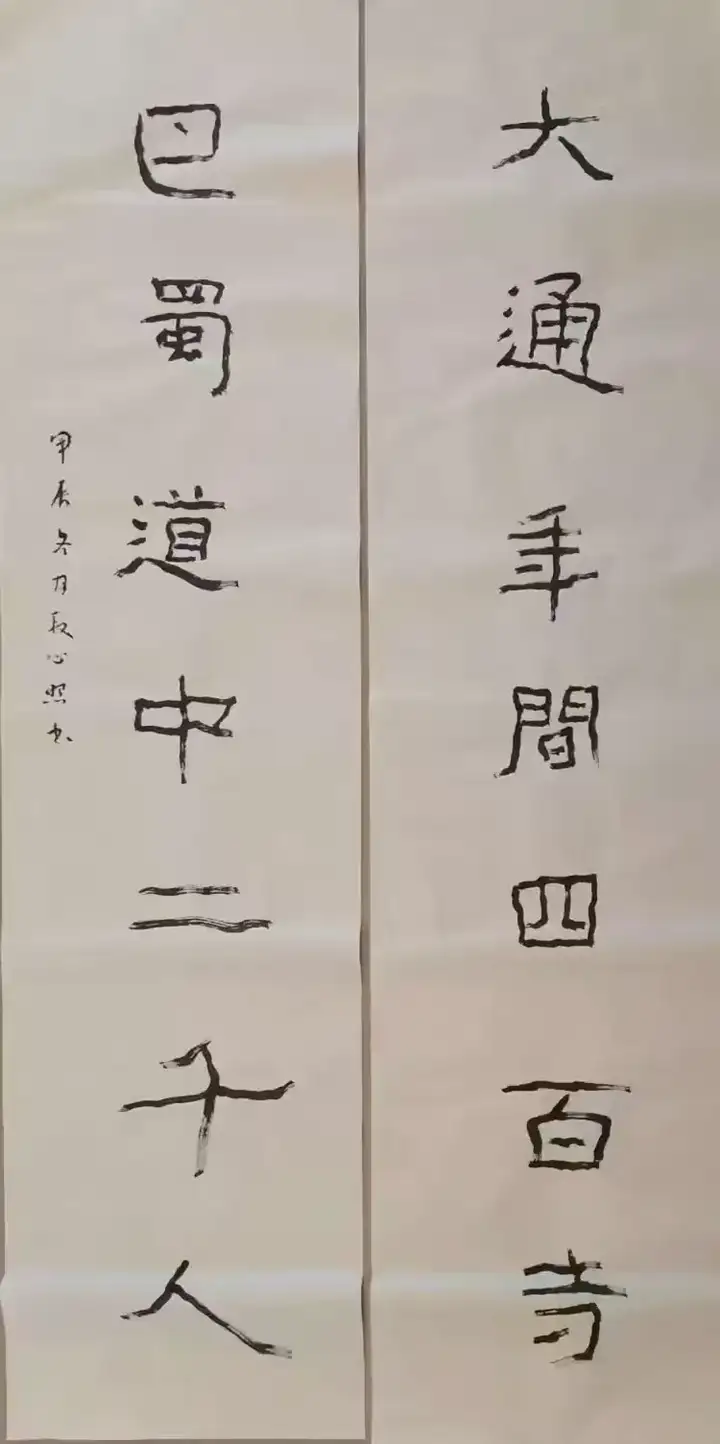 大通年間四百寺
巴蜀道中二千人
甲辰冬月段心照书